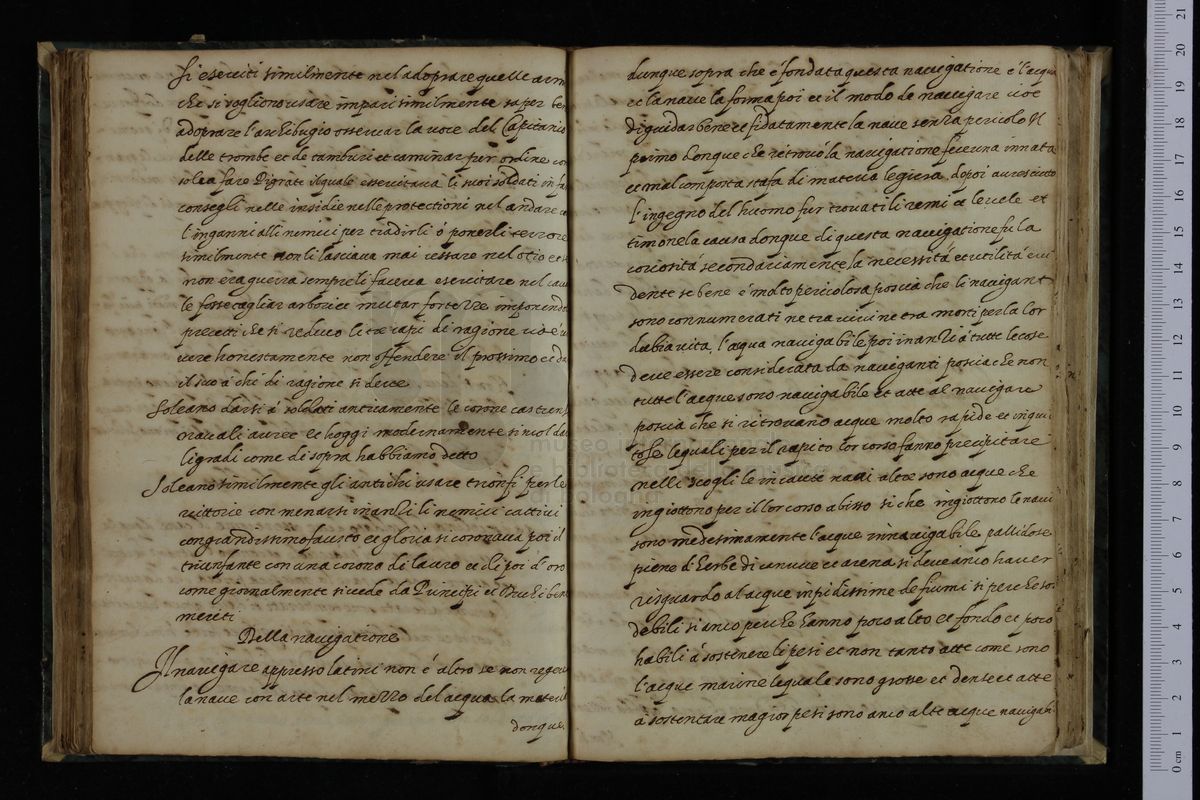 si eserciti similmente nel adoprare quelle arm
che si vogliono usare impari similmente saper ben
adoprare l'archibugio osservar la voce del Capitanio
delle trombe et de tamburi et caminar per ordine co
solea fare il quale essercitava li suoi soldati in
consegli nelle insidie nelle protectioni nel andare
l'inganni alli nemici per tradirli ò ponerli terrore
similmente non li lasciava mai cessare nel otio et
non era guerra sempre li faceva esercitare nel
le fosse tagliar arbori et mutar fortezze imponendo
precetti che si reduco li tre capi di ragione cioè
vere honestamente non offendere il prossimo et da
il suo à chi di ragione si deve
Soleano darsi à soldati anticamente le corone castrens
navali auree et hoggi modernamente si vol da
li gradi come di sopra habbiamo detto
Soleano similmente gli antichi usare trionfi per le
vittorie con menarsi inanzi li nemici cattivi
con grandissimo fausto et gloria si coronava poi il
triunfante con una corona di lauro et di poi d'oro
come giornalmente si vede da Principi et Duchi ben
meriti
Della navigatione
Il navigare appresso latini non é altro se non reger
la nave con arte nel mezzo del acqua la materia
donque
dunque sopra che é fondata questa navigatione é l'acqua
et la nave la forma poi et il modo de navigare cioé
di guidar bene et fidatamente la nave senza pericolo Il
primo donque che retrovò la navigatione fece una innata
et mal composta di materia legiera dopoi acresciuto
l'ingegno del huomo fur trovati li remi et le vele et
timone la causa donque di questa navigatione fu la
curiositá secondariamente la necessitá et utilitá evi
dente se bene é molto pericolosa poscia che li navigant
sono connumerati ne tra vivi ne tra morti per la lor
dubia vita, l'acqua navigabile poi inanzi á tutte le cose
deve essere considerata da naviganti poscia che non
tutte l'acque sono navigabile et atte al navigare
poscia che si ritrovano acque molto rapide et inquie
tose le quali per il rapito lor corso fanno precipitare
nelli scogli le incaute navi altre sono acque che
ingiottono per il lor corso abisso si che ingiottono le navi
sono medesimamente l'acque innavigabile pallidose
piene d'herbe di et arena si deve anco haver
risguardo al acque de fiumi si perche son
debili si anco perche hanno poco alto et fondo et poco
habili á sostenere li pesi et non tanto atte come sono
l'acque marine le quale sono grosse et dense et atte
á sostentare magior pesi sono anco alte acque navigab